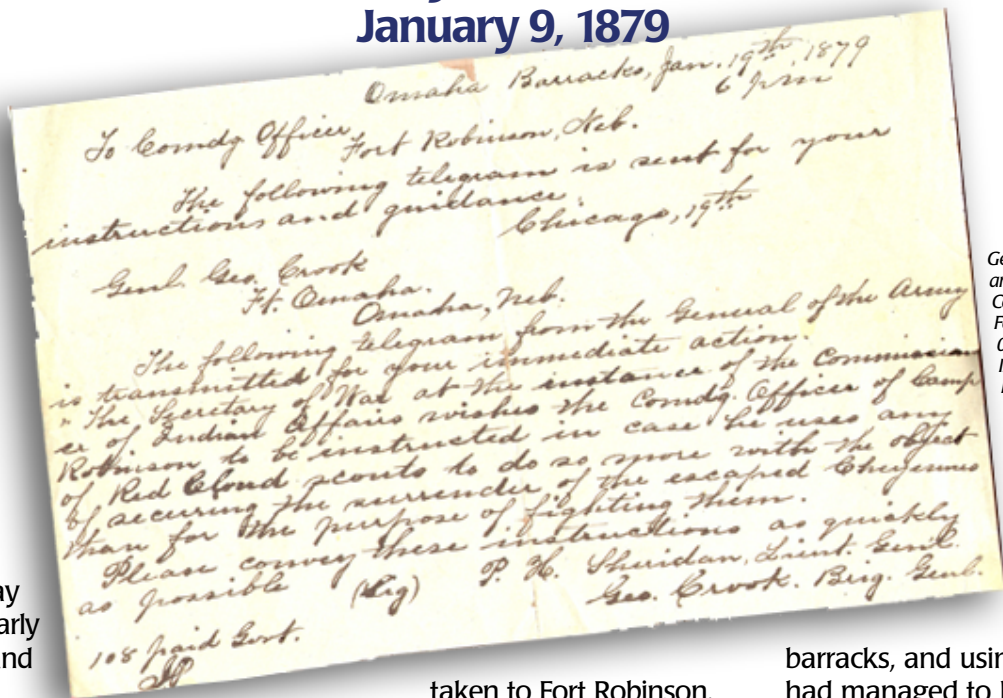 January 9, 1879
Omaha Barracks, Jan. 19th, 1879
6 pm
To Comdg Officer
Fort Robinson, Neb.
The following telegram is sent for your
instructions and guidance.
Chicago, 19th
Genl. Geo. Crook
Ft. Omaha.
Omaha, Neb.
The following telegram from the General of the Army
is transmitted for your immediate action.
"The Secretary of War at the instance of the Commission
er of Indian Affairs wishes the Comdg. Officer of Camp
Robinson to be instructed in case he uses any
of Red Cloud scouts to do so more with the object
of securing the surrender of the escaped Cheyennes
than for the purpose of fighting them.
Please convey these instructions as quickly
as possible
(Sig) P. H. Sheridan, Lieut. Genl.
Geo. Crook. Brig. Genl.
108 paid Govt.
ay
arly
nd
taken to Fort Robinson,
barracks, and usin
had managed to
Ge
an